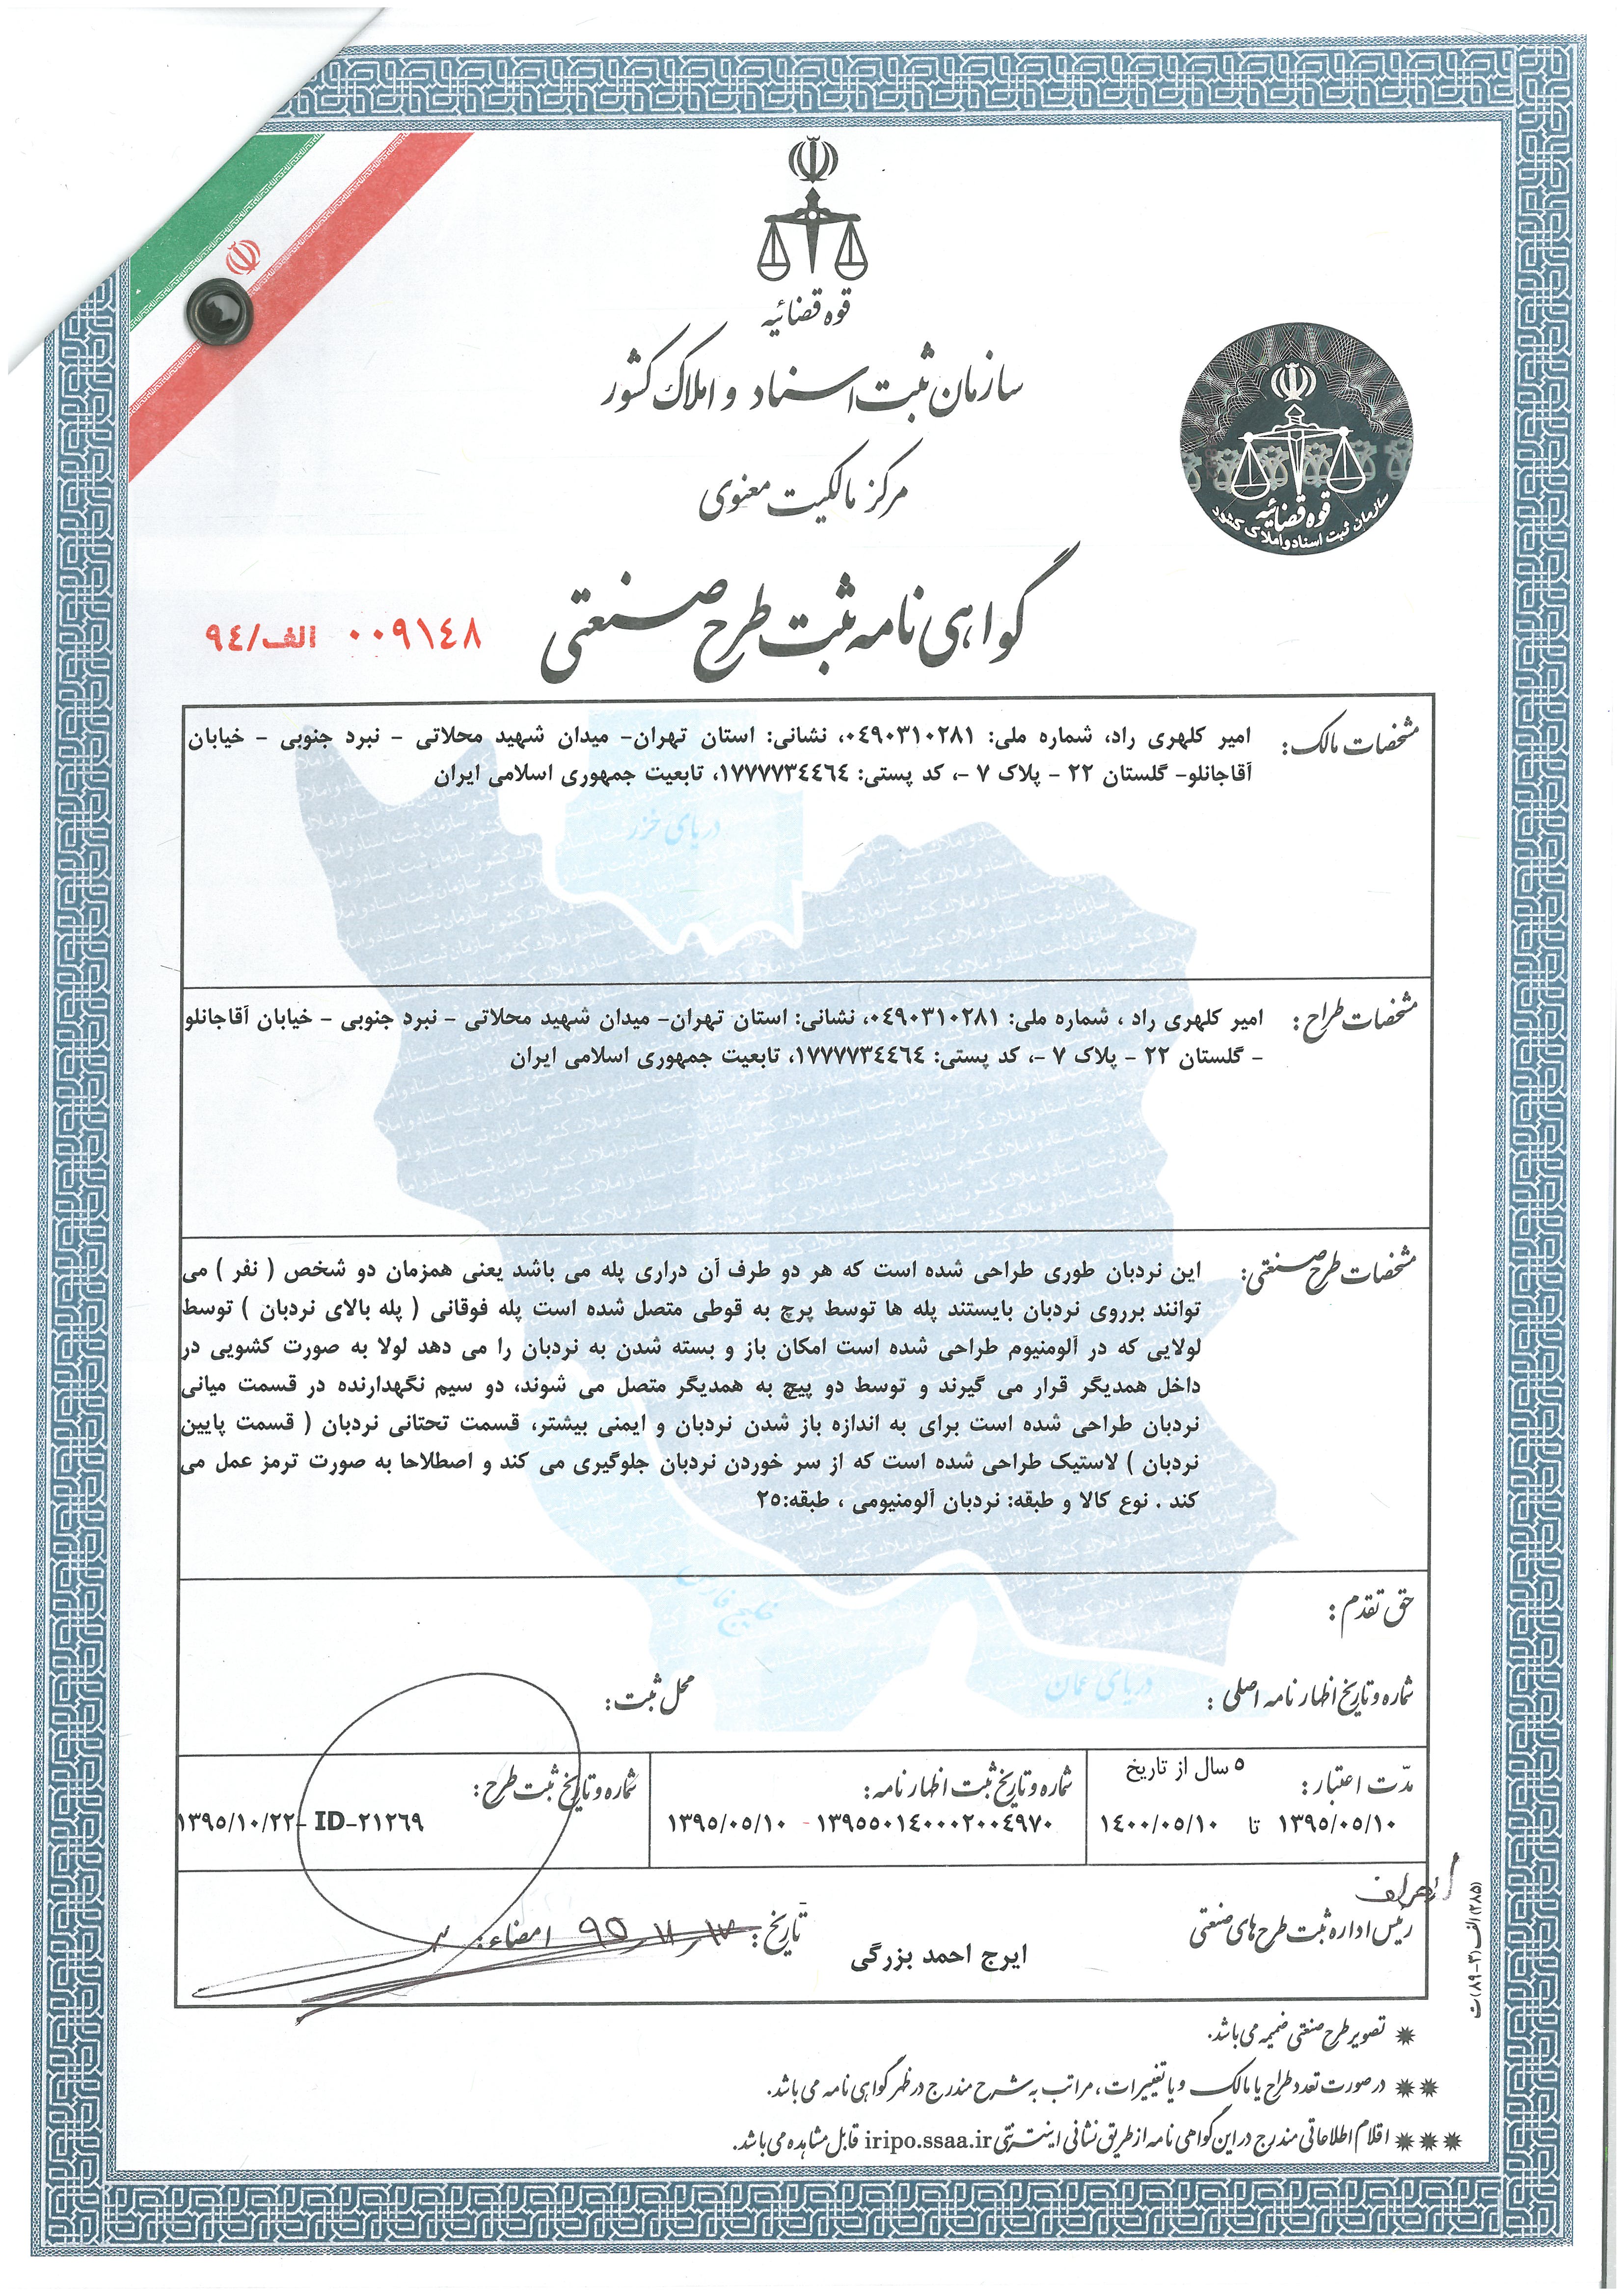 قوه قضائیه
سازمان ثبت اسناد و املاک کشور
مرکز مالکیت معنوی
قوه قضائیه
سازمان ثبت اسناد و املاک کشور
گواهی نامه ثبت طرح صنعتی
۰۰۹۱۴۸ الف/۹۴
مشخصات مالک: امیر کلهری راد، شماره ملی: ۰٤۹۰۳۱۰۲۸۱، نشانی: استان تهران- میدان شهید محلاتی - نبرد جنوبی - خیابان
آقاجانلو- گلستان ۲۲ - پلاک ۷ -، کد پستی: ۱۷۷۷۷۳٤٤٦٤، تابعیت جمهوری اسلامی ایران
دریای خزر
مشخصات طراح: امیر کلهری راد ، شماره ملی: ۰٤۹۰۳۱۰۲۸۱، نشانی: استان تهران- میدان شهید محلاتی - نبرد جنوبی - خیابان آقاجانلو
- گلستان ۲۲ - پلاک ۷ -، کد پستی: ۱۷۷۷۷۳٤٤٦٤، تابعیت جمهوری اسلامی ایران
مشخصات طرح صنعتی: این نردبان طوری طراحی شده است که هر دو طرف آن دراری پله می باشد یعنی همزمان دو شخص ( نفر ) می
توانند برروی نردبان بایستند پله ها توسط پرچ به قوطی متصل شده است پله فوقانی ( پله بالای نردبان ) توسط
لولایی که در آلومنیوم طراحی شده است امکان باز و بسته شدن به نردبان را می دهد لولا به صورت کشویی در
داخل همدیگر قرار می گیرند و توسط دو پیچ به همدیگر متصل می شوند، دو سیم نگهدارنده در قسمت میانی
نردبان طراحی شده است برای به اندازه باز شدن نردبان و ایمنی بیشتر، قسمت تحتانی نردبان ( قسمت پایین
نردبان ) لاستیک طراحی شده است که از سر خوردن نردبان جلوگیری می کند و اصطلاحا به صورت ترمز عمل می
کند . نوع کالا و طبقه: نردبان آلومنیومی ، طبقه:۲۵
خلیج فارس
حق تقدم :
دریای عمان
شماره و تاریخ اظهار نامه اصلی : محل ثبت:
مدّت اعتبار: ۵ سال از تاریخ
۱۳۹۵/۰۵/۱۰ تا ۱٤۰۰/۰۵/۱۰
شماره و تاریخ ثبت اظهار نامه:
۱۳۹۵۵۰۱٤۰۰۰۲۰۰٤۹۷۰ - ۱۳۹۵/۰۵/۱۰
شماره و تاریخ ثبت طرح:
ID-۲۱۲٦۹ -۱۳۹۵/۱۰/۲۲
رئیس اداره ثبت طرح های صنعتی
ایرج احمد بزرگی
تاریخ: امضاء:
الف (۳-۸۹) ت (۲۸۵)
تصویر طرح صنعتی ضمیمه می باشد.
در صورت تعدد طراح یا مالک و یا تغییرات ، مراتب به شرح مندرج در ظهر گواهی نامه می باشد.
اقلام اطلاعاتی مندرج در این گواهی نامه از طریق نشانی اینترنتی iripo.ssaa.ir قابل مشاهده می باشد.